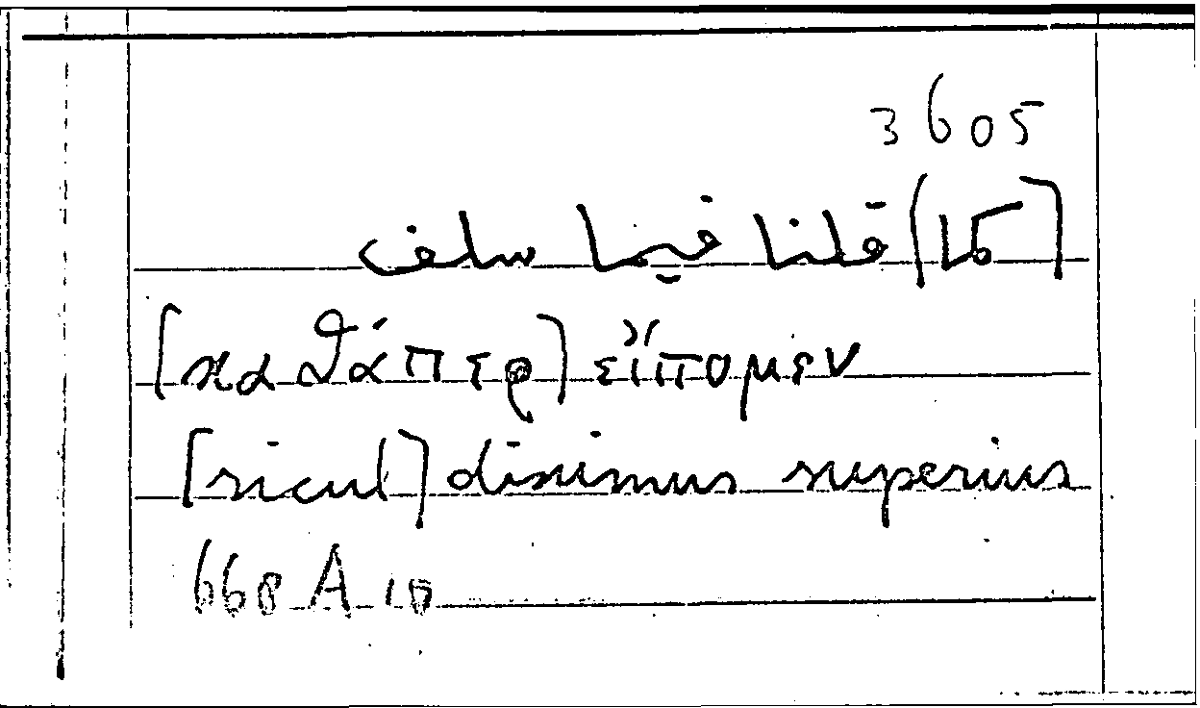 3605
[كما] قلنا فيما سلف
[καθάπερ] εἴπομεν
[sicut] diximus superius
668 A 10